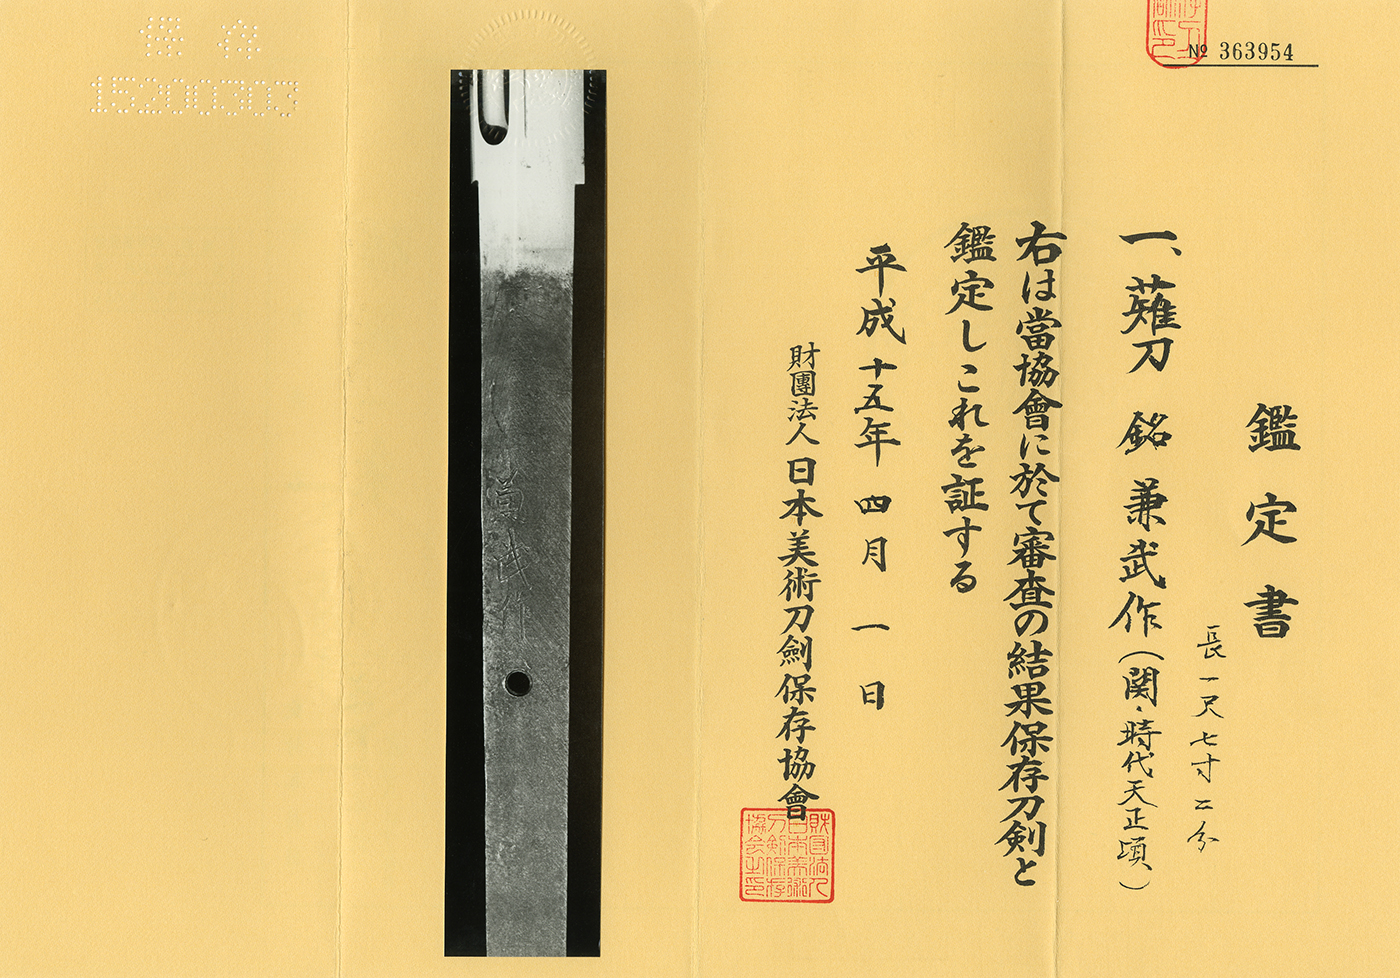 № 363954
鑑定書
一、薙刀 銘 兼武作（関・時代天正頃）
長一尺七寸二分
右は當協會に於て審査の結果保存刀剣と
鑑定しこれを証する
平成十五年四月一日
財團法人日本美術刀劍保存協會
財団法人日本美術刀剣保存協会之印
保存
15200303
兼武作